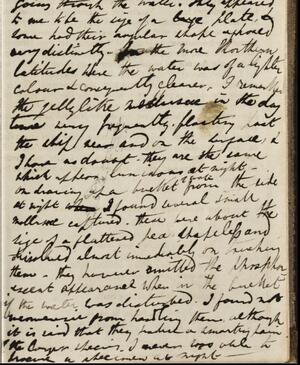 focus through the water. They appeared
to me to be the size of a large plate, &
some had their angular shape exposed
very distinctly. In the more Northern
latitudes where the water was of a lighter
colour & consequently clearer, I remember
the jelly like molluscs in the day
time very frequently floating past
the ship near and on the surface, &
I have no doubt they are the same
which appear luminous at night -
on drawing up a bucket of water from the side
at night when I found several small
molluscs captured. these were about the
size of a flattened pea shapeless and
dissolved almost immediately on
them - they however emitted the phosphor-
escent appearance when in the bucket
if the water was disturbed. I found no
inconvenience from handling them, although
it is said that they a smarting pain
the larger species, I never was able to
procure a specimen at night -